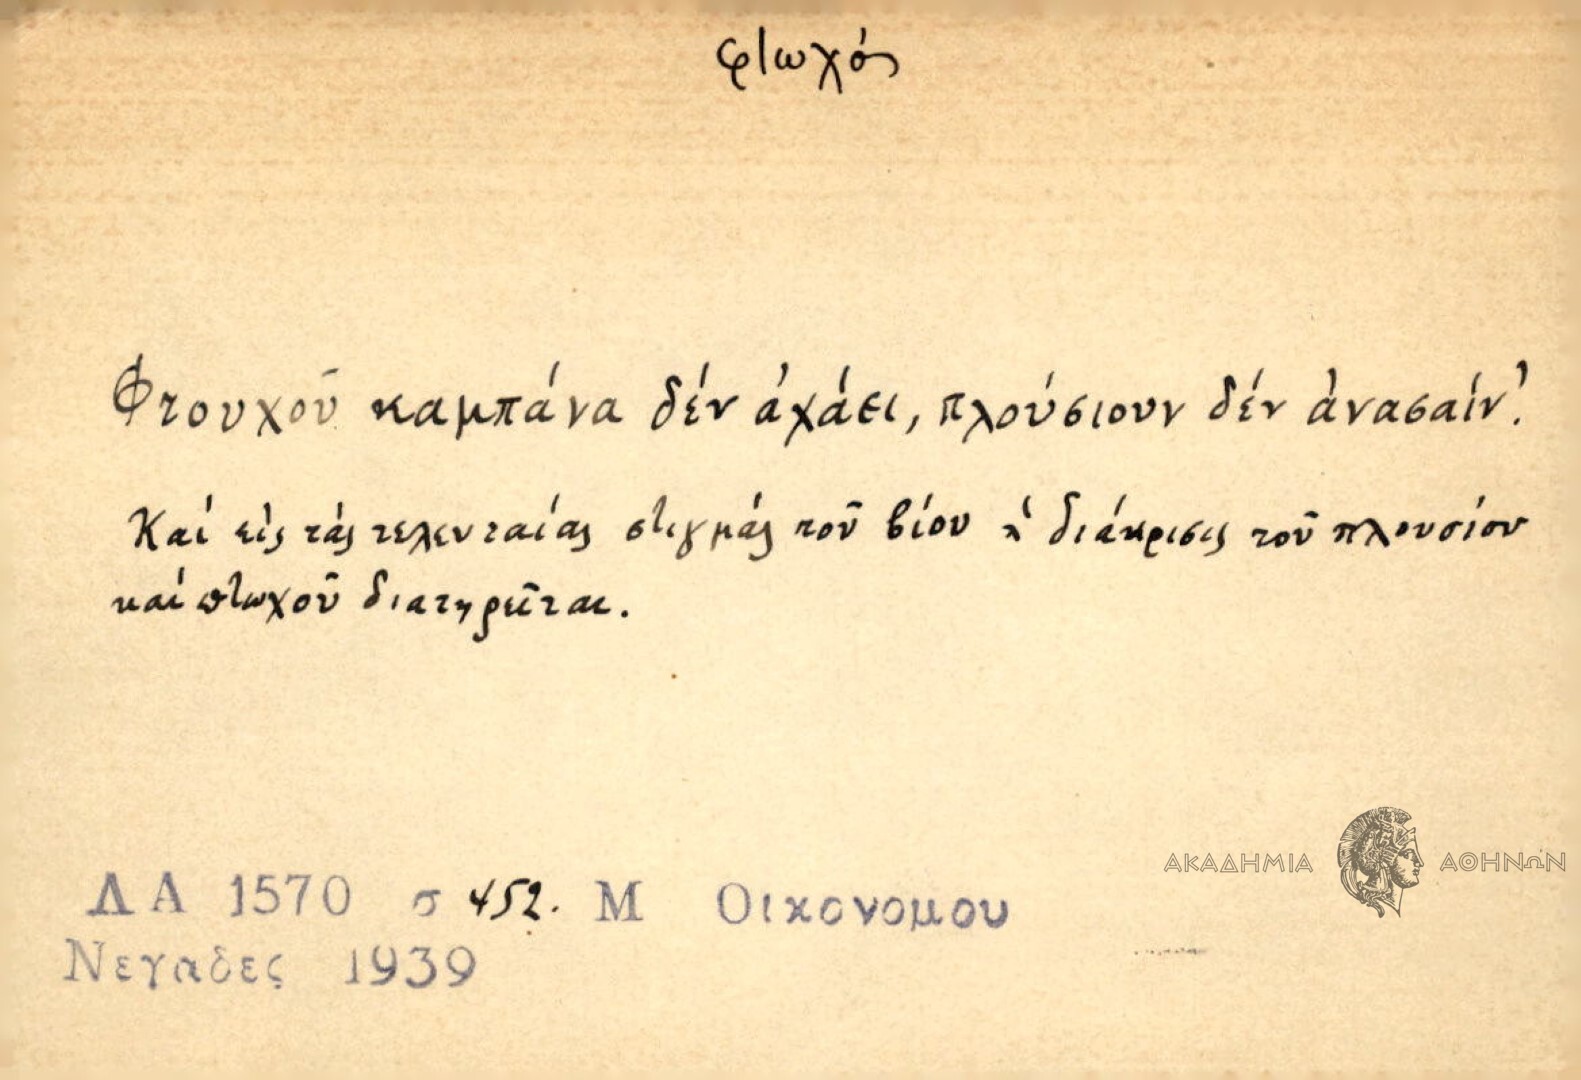 φτωχός
Φτουχοῦ καμπάνα δέν ἀχάει, πλούσιουν δέν ἀνασαίν'.
Καί εἰς τάς τελευταίας στιγμάς τοῦ βίου ἡ διάκρισις τοῦ πλουσίου
καί πτωχοῦ διατηρεῖται.
ΑΚΑΔΗΜΙΑ ΑΘΗΝΩΝ
ΛΑ 1570 σ 452. Μ Οικονομου
Νεγαδες 1939